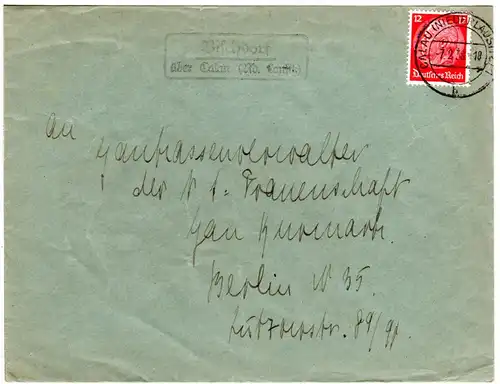 Bischdorf
über Calau (Nd. Lausitz)
12 12
Deutsches Reich
CALAU (NIEDERLAUSITZ)
An
Gaukassenverwalter
der N S = Frauenschaft
Gau Kurmark.
Berlin W 35.
Lützowstr. 89/90